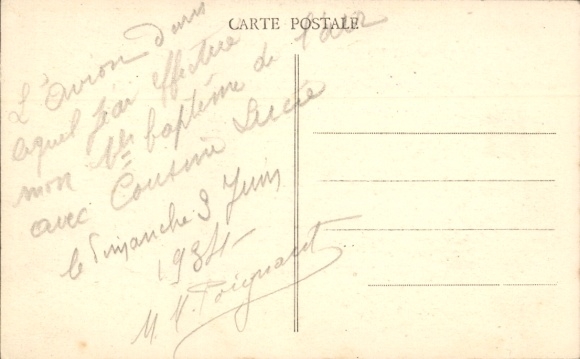 CARTE POSTALE
L'avion dans
lequel j'ai effectué
mon baptême de l'air
avec Cousine Lucie
le Dimanche 3 Juin
1934
M.